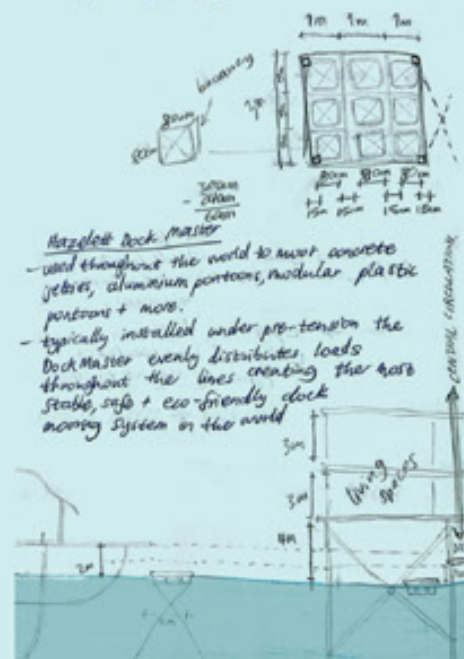 1m 1m 1m
buoyancy
80cm
80cm
3m
80cm 80cm 80cm
15cm 15cm 15cm 15cm
Hazelett Dock Master
- used throughout the world to moor concrete
jetties, aluminium pontoons, modular plastic
pontoons + more.
- typically installed under pre-tension the
Dock Master evenly distributes loads
throughout the lines creating the most
stable, safe + eco-friendly dock
mooring system in the world
CENTRAL CIRCULATION
3m
living
spaces
3m
4m
2m